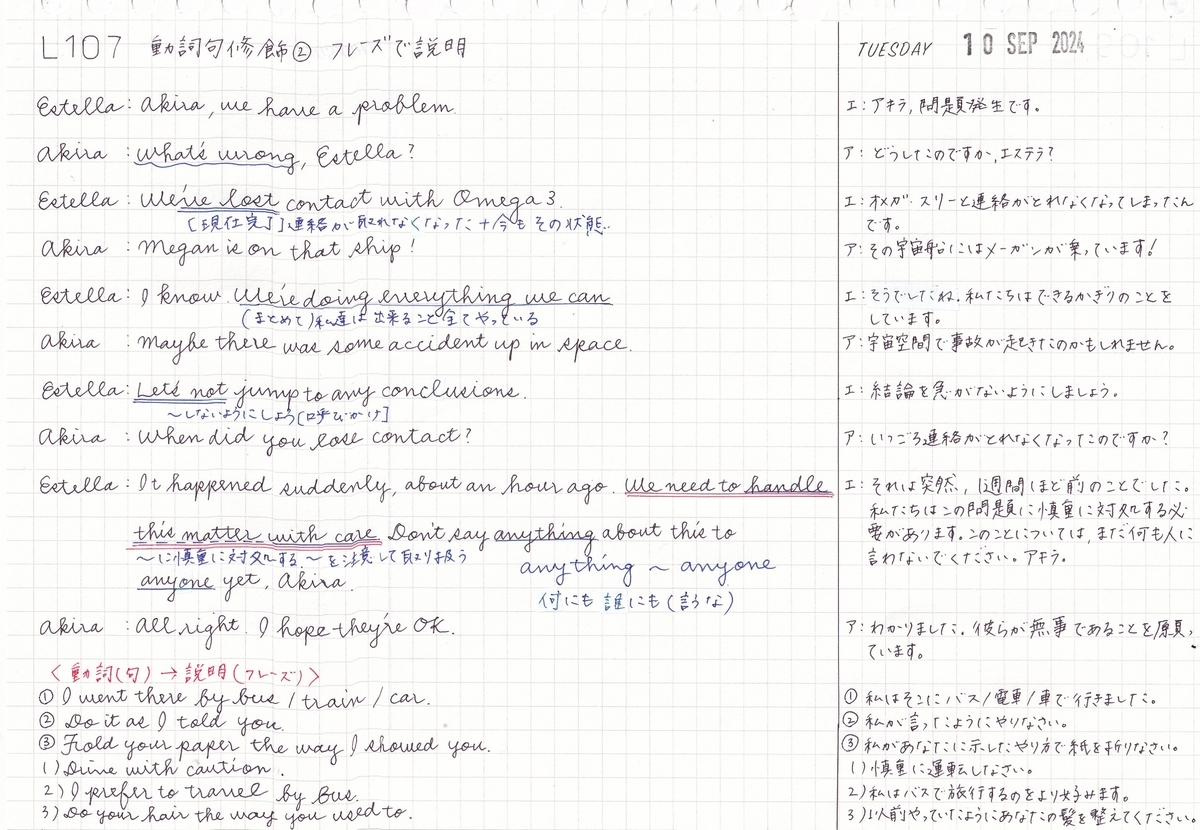 L107 動詞句修飾② フレーズで説明
TUESDAY 10 SEP 2024
Estella: Akira, we have a problem.
エ: アキラ, 問題発生です。
Akira : What's wrong, Estella?
ア: どうしたのですか, エステラ?
Estella: We've lost contact with Omega 3.
[現在完了] 連絡が取れなくなった + 今もその状態.
エ: オメガ・スリーと連絡がとれなくなってしまったん
です。
Akira : Megan is on that ship!
ア: その宇宙船にはメーガンが乗っています!
Estella: I know. We're doing everything we can
(まとめて) 私達は出来ること全てやっている
エ: そうでしたね. 私たちはできるかぎりのことを
しています。
Akira : Maybe there was some accident up in space.
ア: 宇宙空間で事故が起きたのかもしれません。
Estella: Let's not jump to any conclusions.
〜しないようにしよう [呼びかけ]
エ: 結論を急がないようにしましょう。
Akira : When did you lose contact?
ア: いつごろ連絡がとれなくなったのですか?
Estella: It happened suddenly, about an hour ago. We need to handle
this matter with care. Don't say anything about this to
〜に慎重に対処する. 〜を注意して取り扱う
anyone yet, Akira.
anything ~ anyone
何にも 誰にも (言うな)
エ: それは突然, 1週間ほど前のことでした。
私たちはこの問題に慎重に対処する必
要があります。このことについては, まだ何も人に
言わないでください。アキラ。
Akira : All right. I hope they're OK.
ア: わかりました. 彼らが無事であることを願っ
ています。
<動詞(句) → 説明(フレーズ)>
① I went there by bus / train / car.
② Do it as I told you.
③ Fold your paper the way I showed you.
1) Drive with caution.
2) I prefer to travel by bus.
3) Do your hair the way you used to.
① 私はそこにバス/電車/車で行きました。
② 私が言ったようにやりなさい。
③ 私があなたに示したやり方で紙を折りなさい。
1) 慎重に運転しなさい。
2) 私はバスで旅行するのをより好みます。
3) 以前やっていたようにあなたの髪を整えてください。